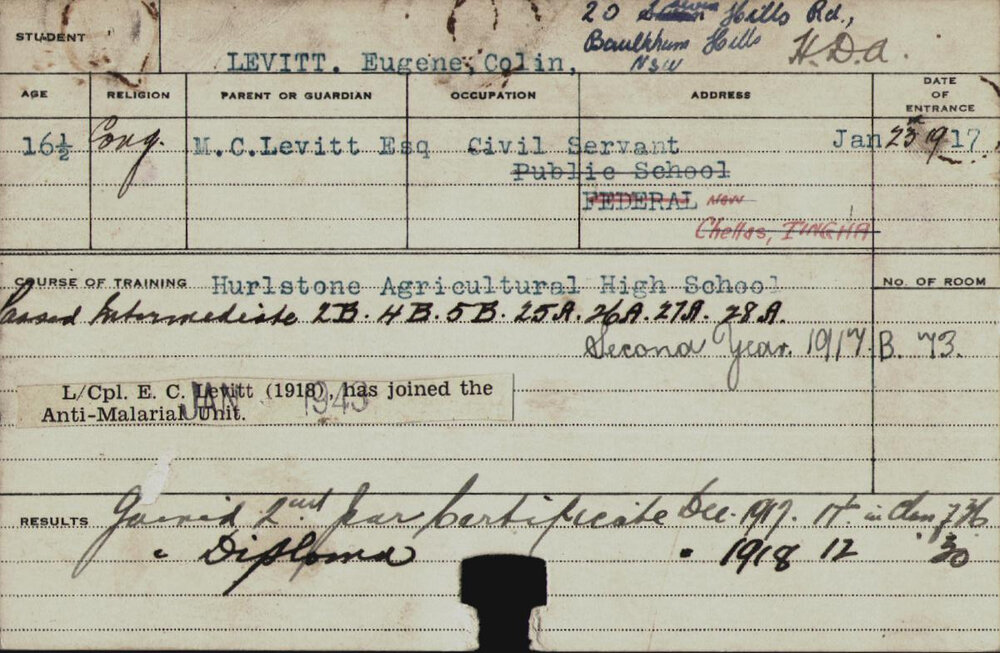 20 Hills Rd.,
Baulkham Hills
NSW
H.D.A.
STUDENT
LEVITT. Eugene, Colin,
AGE RELIGION PARENT OR GUARDIAN OCCUPATION ADDRESS DATE OF ENTRANCE
16½ Cong. M.C.Levitt Esq Civil Servant Jan 23 1917
Public School
FEDERAL NSW
Chellas, TINGHA
COURSE OF TRAINING Hurlstone Agricultural High School NO. OF ROOM
Passed Intermediate 2B. 4B. 5B. 25A. 26A. 27A. 28A.
Second Year. 1917. B. 73.
L/Cpl. E. C. Levitt (1918), has joined the
Anti-Malarial Unit.
JAN 1943
RESULTS Gained 2nd Year Certificate Dec. 1917. in class
" Diploma " 1918 12 " 30